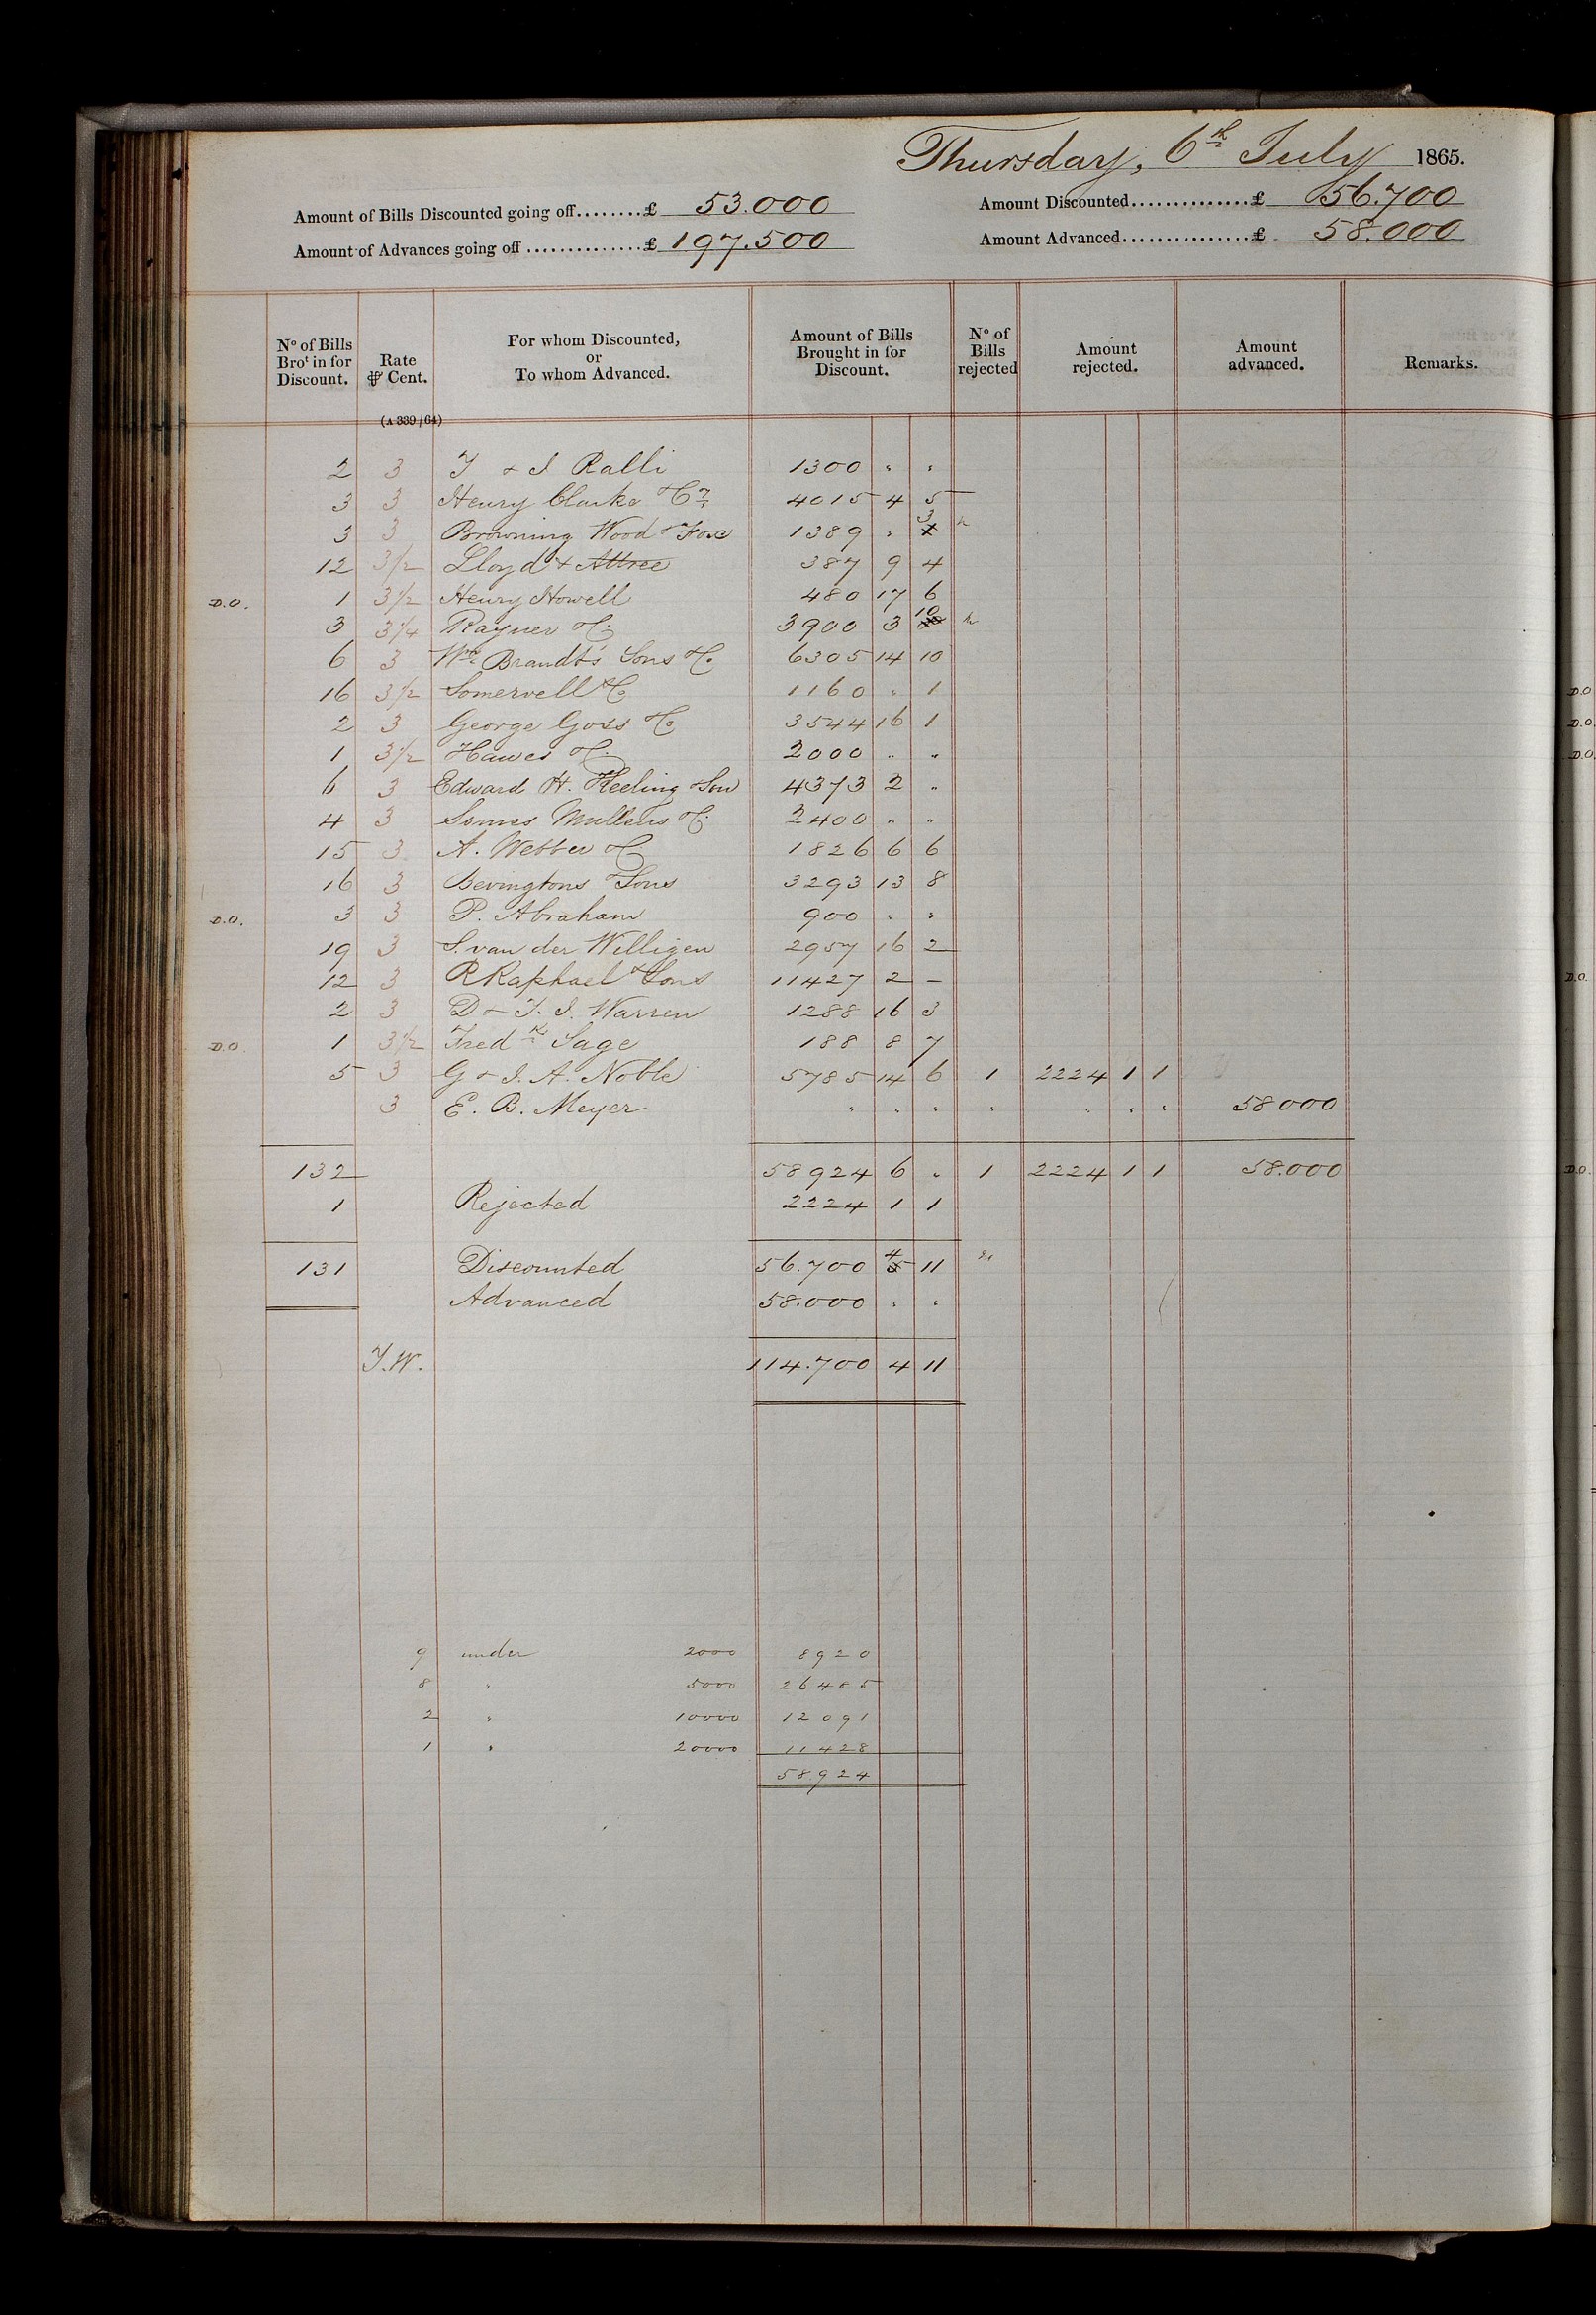 Thursday, 6th July 1865.
Amount of Bills Discounted going off........£ 53.000
Amount Discounted..............£ 56.700
Amount of Advances going off..............£ 197.500
Amount Advanced...............£ 58.000
No of Bills Brot in for Discount. Rate ⅌ Cent. For whom Discounted, or To whom Advanced. Amount of Bills Brought in for Discount. No of Bills rejected Amount rejected. Amount advanced. Remarks.
(A 339/64)
2 3 & I Ralli 1300 " "
3 3 Henry Clarke & Co 4015 4 5
3 3 Browning Wood & Fox 1389 " 3
12 3½ Lloyd & Attree 387 9 4
D.O. 1 3½ Henry Howell 480 17 6
3 3¼ Rayner & Co 3900 3 10
6 3 Wm Brandt's Sons & Co 6305 14 10
16 3½ Somervell & Co 1160 " 1
D.O
2 3 George Goss & Co 3544 16 1
D.O.
1 3½ Hawes & Co 2000 " "
D.O.
6 3 Edward H. Keeling & Son 4373 2 "
4 3 Somes Mullens & Co 2400 " "
15 3 A. Webber & Co 1826 6 6
16 3 Bevingtons & Sons 3293 13 8
D.O. 3 3 P. Abraham 900 " "
19 3 S. van der Willigen 2957 16 2
12 3 R Raphael & Sons 11427 2 –
D.O.
2 3 D & T. J. Warren 1288 16 3
D.O. 1 3½ Fredk Sage 188 8 7
5 3 G & J. A. Noble 5785 14 6 1 2224 1 1
3 E. B. Meyer " " " " " " " 58000
132 58924 6 " 1 2224 1 1 58.000
D.O.
1 Rejected 2224 1 1
131 Discounted 56.700 4 11
Advanced 58.000 " "
J.W. 114.700 4 11
9 under 2000 8920
8 " 5000 26485
2 " 10000 12091
1 " 20000 11428
58.924